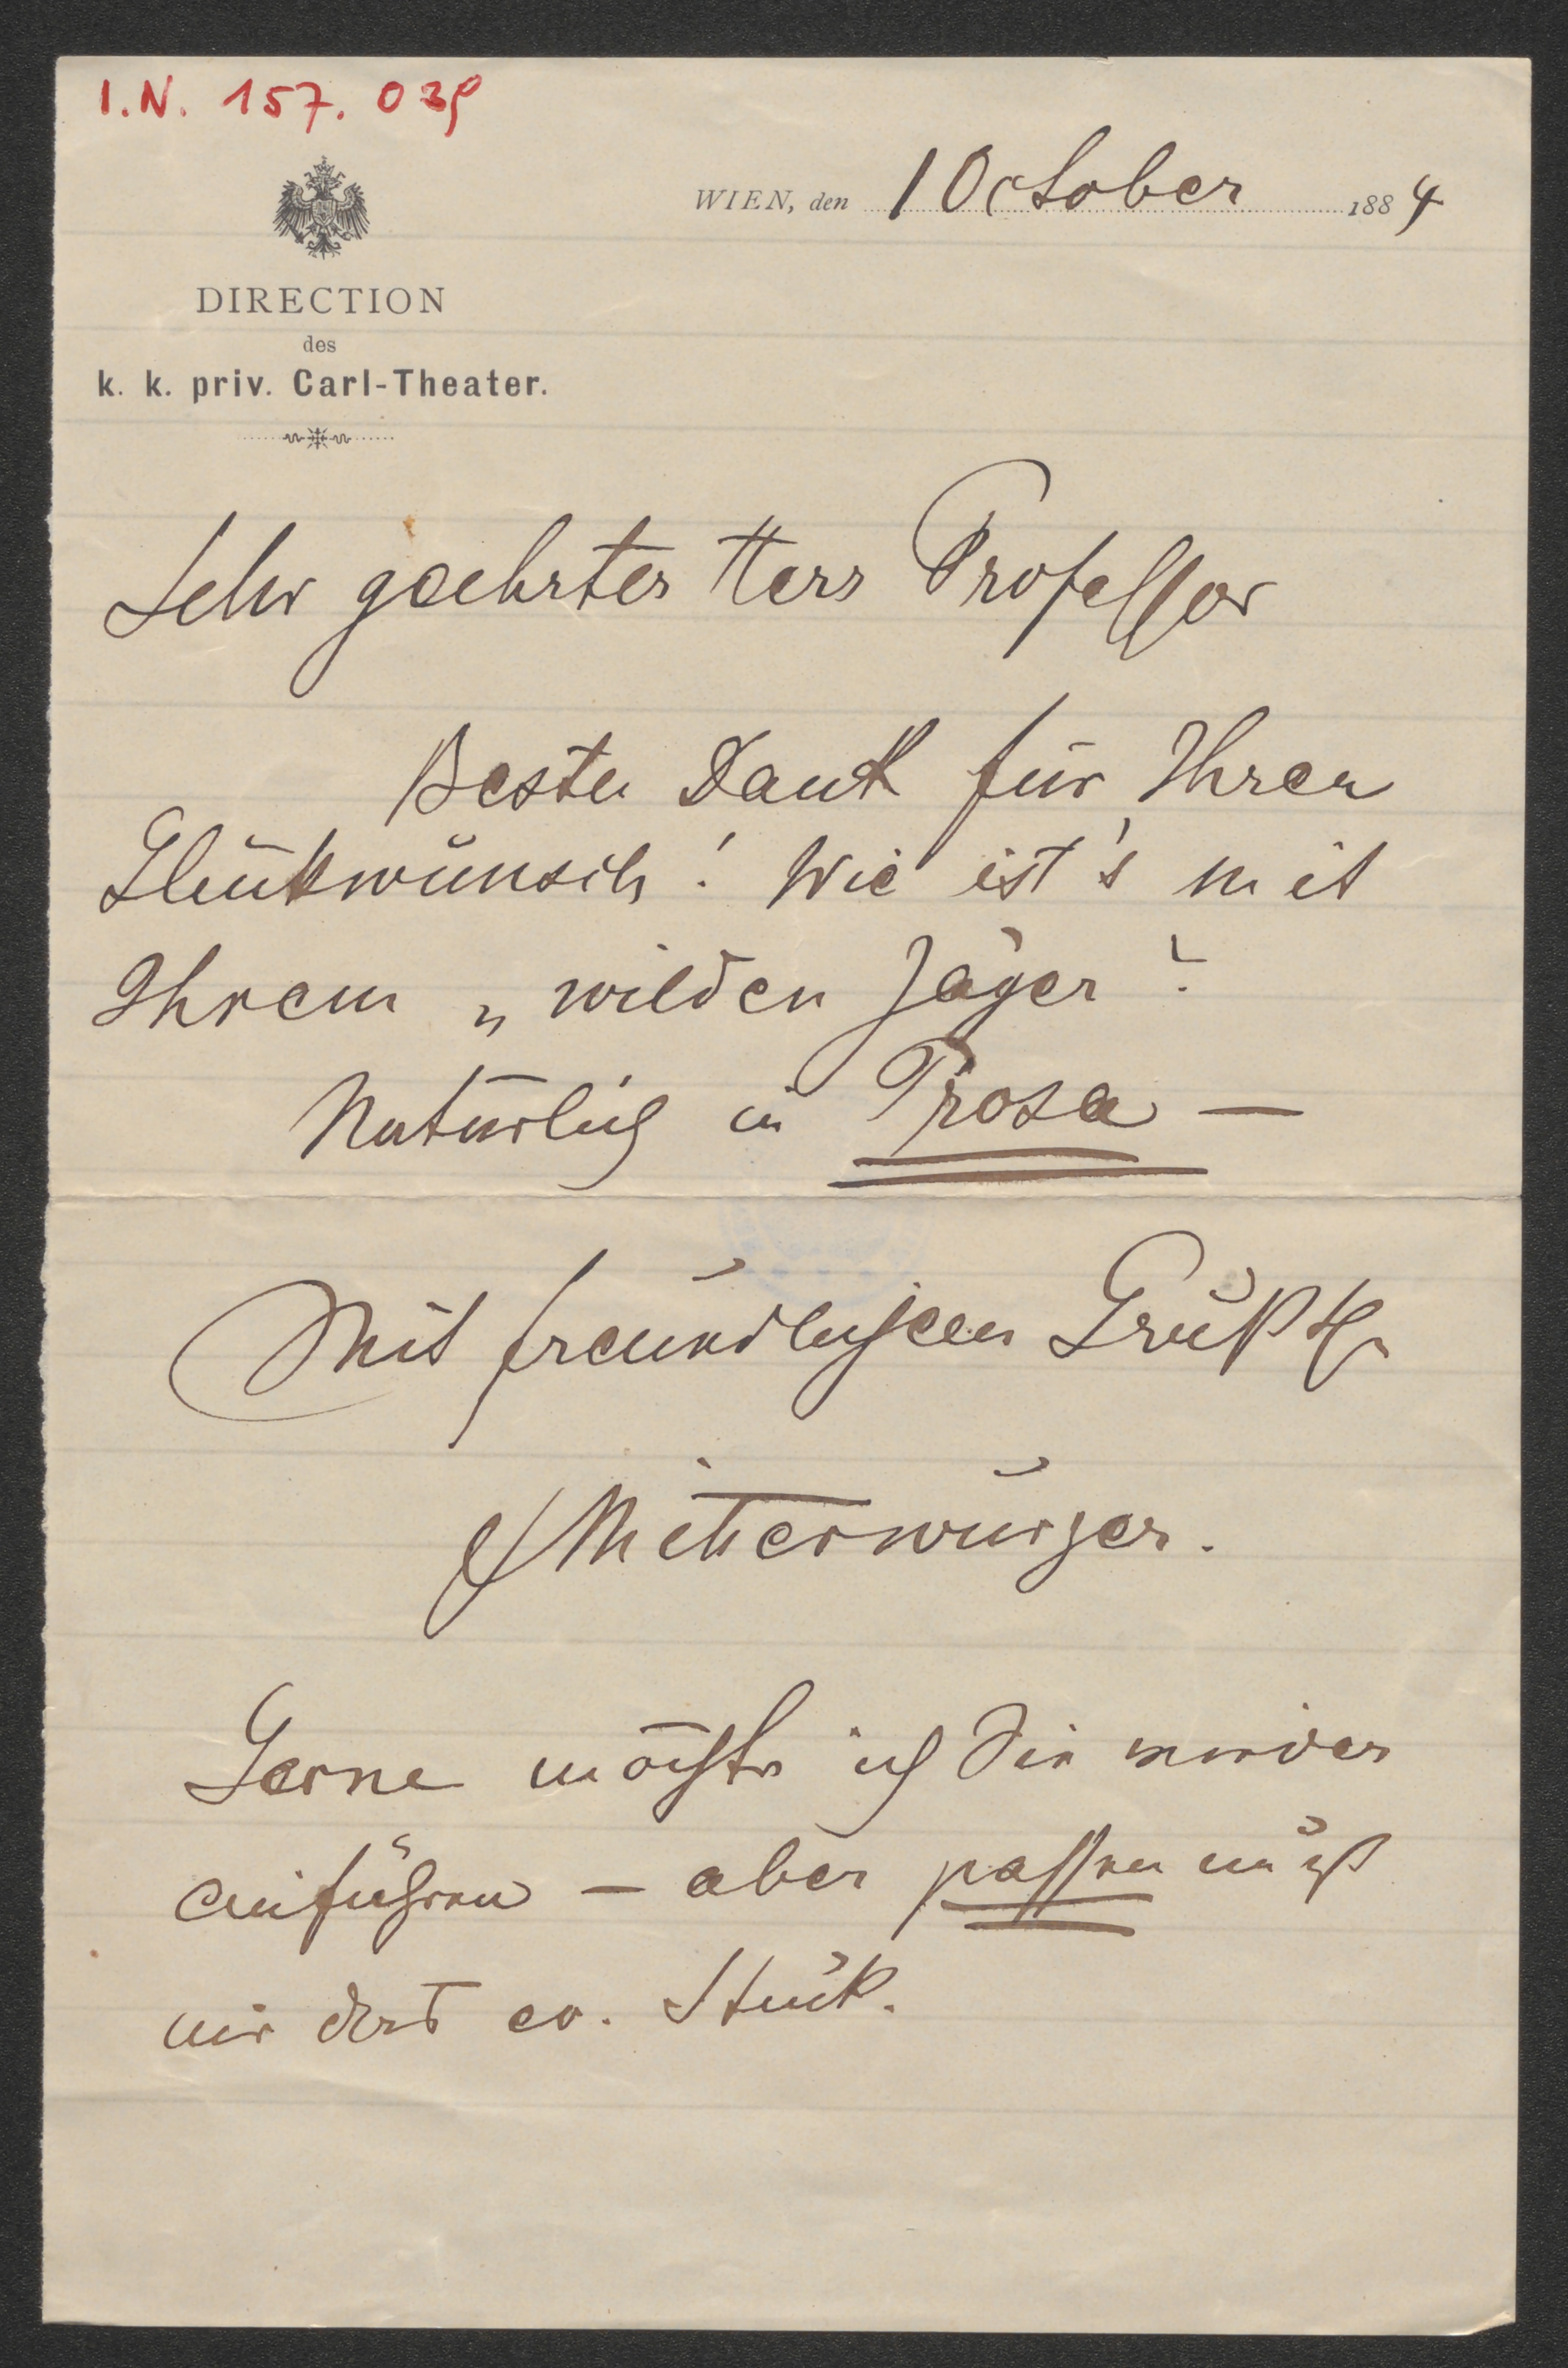 I.N. 157.039
WIEN, den 1 October 1884
DIRECTION
des
k. k. priv. Carl-Theater.
Sehr geehrter Herr Professor
Besten Dank für Ihren
Glückwunsch! Wie ist's mit
Ihrem „wilden Jäger?
Natürlich in Prosa —
Mit freundlichem Gruß
Mitterwurzer.
Gerne möchte ich Sie wieder
aufführen — aber passen muß
mir das ev. Stück.